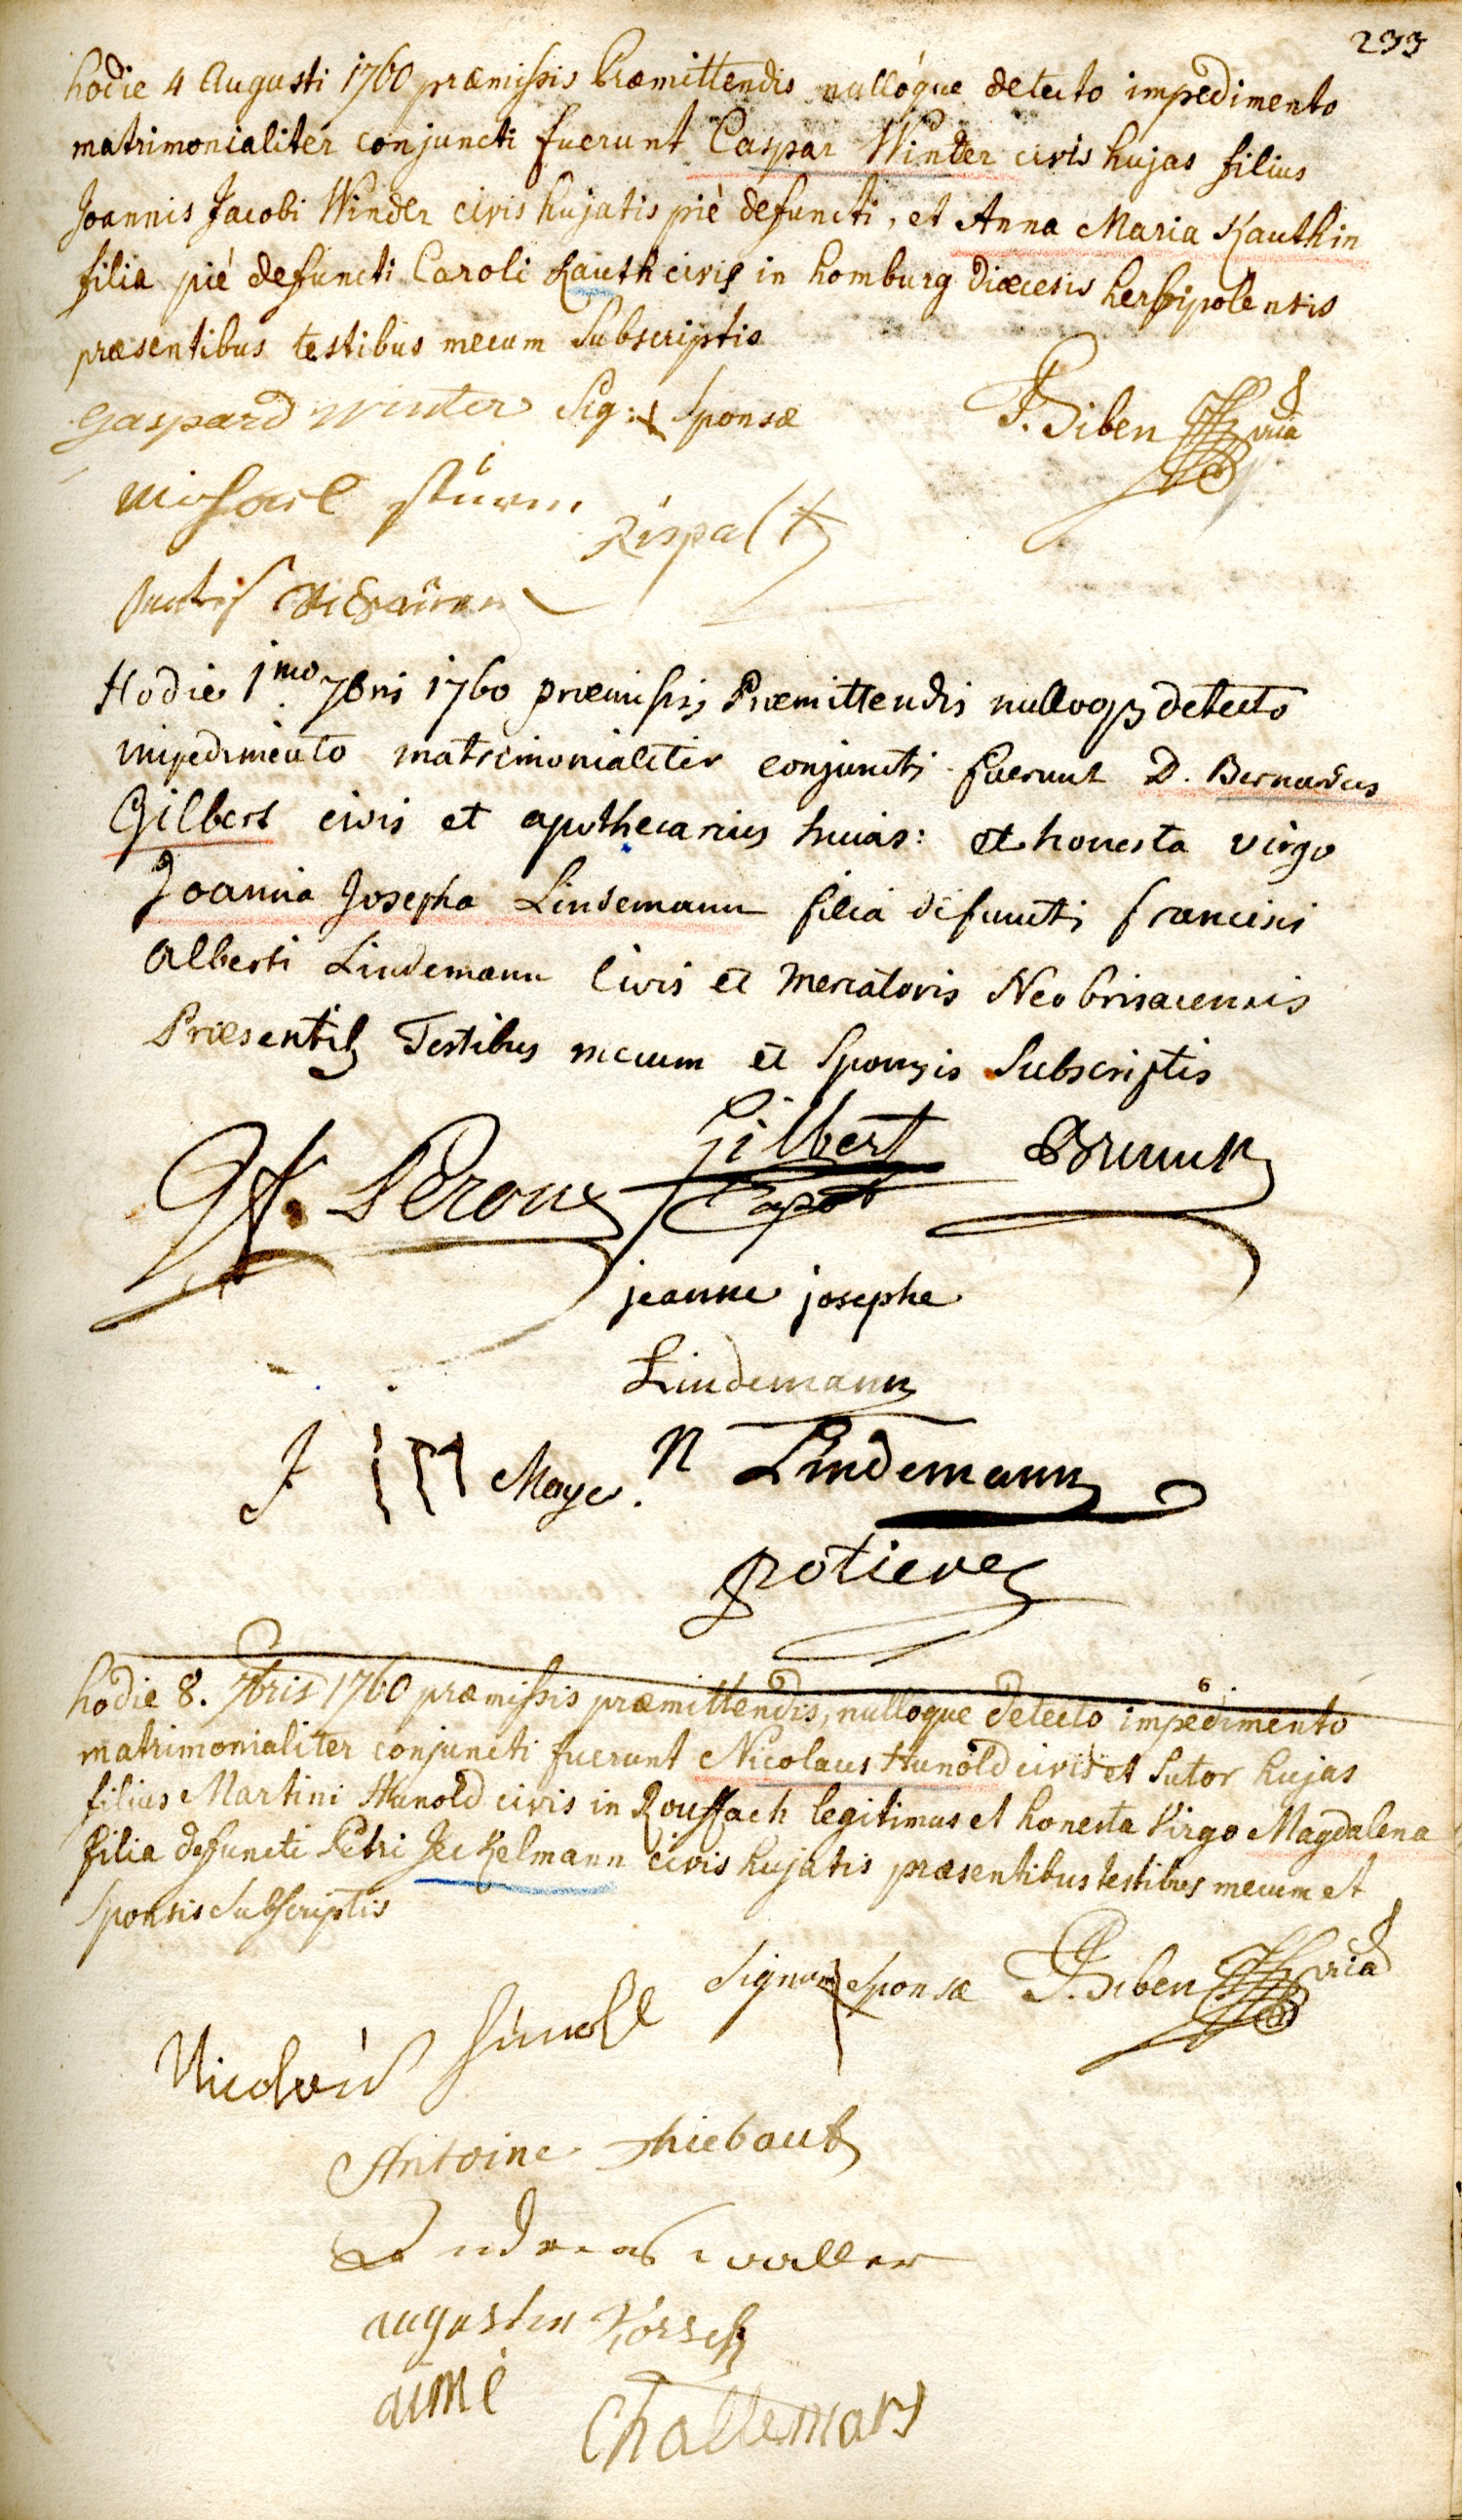 233
hodie 4 Augusti 1760 præmissis præmittendis nullóque detecto impedimento
matrimonialiter conjuncti fuerunt Caspar Winder civis hujas filius
Joannis Jacobi Winder civis hujatis piè defuncti, et Anna Maria Kauthin
filia piè defuncti Caroli Kauth civis in homburg Diœcesis herbipolensis
præsentibus testibus mecum Subscriptis
gaspard winter Sig: Sponsæ P. Biben
Michael Stürm
Hodie 1mo 7bris 1760 præmissis Præmittendis nulloq3 detecto
impedimento matrimonialiter conjuncti fuerunt D. Bernardus
Gilbert civis et apothecarius huias: et honesta virgo
Joanna Josepha Lindemann filia defuncti francisci
Alberti Lindemann Civis et Mercatoris Neobrisacensis
Præsentib3 Testibus mecum et Sponsis Subscriptis
Peroux Gilbert Brunck
apot
jeanne josephe
Lindemann
J Maye. N Lindemann
potiere
hodie 8. 7bris 1760 præmissis præmittendis, nulloque detecto impedimento
matrimonialiter conjuncti fuerunt Nicolaus Hunold civis et Sutor hujas
filius Martini Hunold civis in Rouffach legitimus et honesta Virgo Magdalena
filia defuncti Petri Jeckelmann civis hujatis præsentibus testibus mecum et
Sponsis Subscriptis
Signum Sponsæ P. Biben
Nicolaus hunold
Antoine thiebaut
Andreas waller
augustin
aimé Challemars